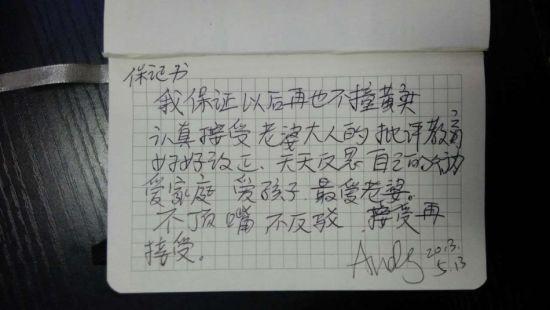 保记书
我保证以后再也不撞黄奕
认真接受老婆大人的批评教育
好好改正、天天反思自己的
爱家庭 爱孩子 最爱老婆。
不顶嘴 不反驳 接受再
接受。
Andy 2013.
5.13